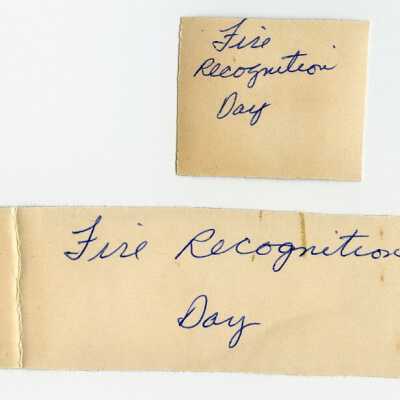 Fire
Recognition
Day
Fire Recognition
Day